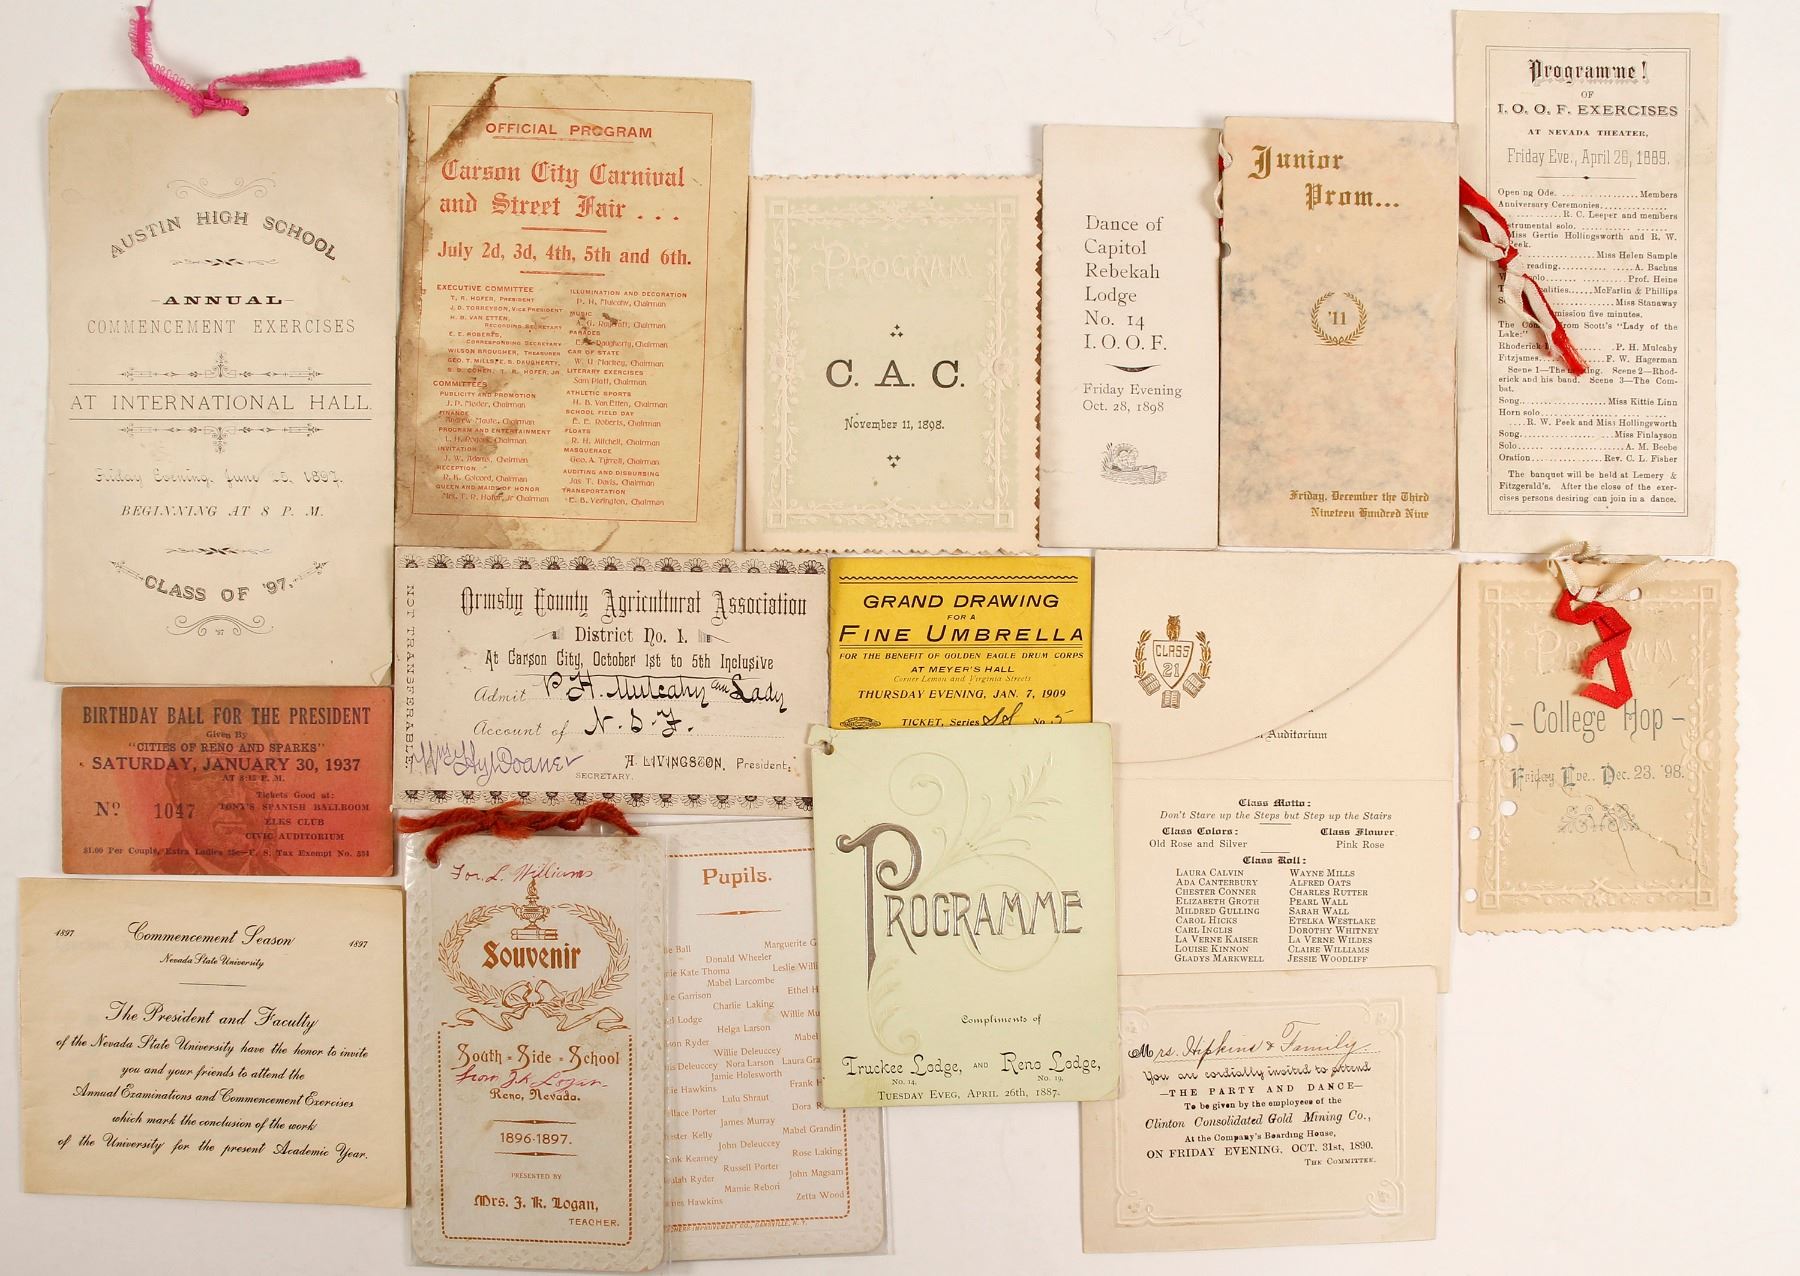 AUSTIN HIGH SCHOOL
ANNUAL
COMMENCEMENT EXERCISES
AT INTERNATIONAL HALL.
Friday Evening, June 1897.
BEGINNING AT 8 P. M.
CLASS OF '97.
'97
OFFICIAL PROGRAM
Carson City Carnival
and Street Fair . . .
July 2d, 3d, 4th, 5th and 6th.
EXECUTIVE COMMITTEE
T. R. HOFER, PRESIDENT
J. D. TORREYSON, VICE PRESIDENT
H. B. VAN ETTEN,
RECORDING SECRETARY
E. E. ROBERTS,
CORRESPONDING SECRETARY
WILSON BROUGHER, TREASURER
GEO. T. MILLS, E. S. DAUGHERTY,
S. D. COHEN, T. R. HOFER, JR
COMMITTEES
PUBLICITY AND PROMOTION
J. P. Meder, Chairman
FINANCE
Andrew Maute, Chairman
PROGRAM AND ENTERTAINMENT
L. H. Rogers, Chairman
INVITATION
J. W. Adams, Chairman
RECEPTION
R. K. Colcord, Chairman
QUEEN AND MAIDS OF HONOR
Mrs. T. R. Hofer, Jr Chairman
ILLUMINATION AND DECORATION
P. H. Mulcahy, Chairman
MUSIC
A. G. Raycraft, Chairman
PARADES
Daugherty, Chairman
CAR OF STATE
W. U. Mackey, Chairman
LITERARY EXERCISES
Sam Platt, Chairman
ATHLETIC SPORTS
H. B. Van Etten, Chairman
SCHOOL FIELD DAY
E. E. Roberts, Chairman
FLOATS
R. H. Mitchell, Chairman
MASQUERADE
Geo. A. Tyrrell, Chairman
AUDITING AND DISBURSING
Jas T. Davis, Chairman
TRANSPORTATION
E. B. Yerington, Chairman
PROGRAM
C. A. C.
November 11, 1898.
Dance of
Capitol
Rebekah
Lodge
No. 14
I. O. O. F.
Friday Evening
Oct. 28, 1898
Junior
Prom...
'11
Friday, December the Third
Nineteen Hundred Nine
Programme!
OF
I. O. O. F. EXERCISES
AT NEVADA THEATER,
Friday Eve., April 26, 1889.
Opening Ode. ................Members
Anniversary Ceremonies..............
........R. C. Leeper and members
Instrumental solo. .............
Miss Gertie Hollingsworth and R. W.
Peek.
Miss Helen Sample
reading.............A. Bachus
solo................Prof. Heine
alities......McFarlin & Phillips
Miss Stanaway
mission five minutes.
The from Scott's "Lady of the
Lake:"
Rhoderick .P. H. Mulcahy
Fitzjames. F. W. Hagerman
Scene 1—The . Scene 2—Rhod-
erick and his band. Scene 3—The Com-
bat.
Song...............Miss Kittie Linn
Horn solo...................
....R. W. Peek and Miss Hollingsworth
Song..............Miss Finlayson
Solo..................A. M. Beebe
Oration...........Rev. C. L. Fisher
The banquet will be held at Lemery &
Fitzgerald's. After the close of the exer-
cises persons desiring can join in a dance.
NOT TRANSFERABLE.
Ormsby County Agricultural Association
District No. 1.
At Carson City, October 1st to 5th Inclusive
Admit P. H. Mulcahy and Lady
Account of N. S. F.
Wm Hy Doane
SECRETARY.
A. LIVINGSTON, President.
GRAND DRAWING
FOR A
FINE UMBRELLA
FOR THE BENEFIT OF GOLDEN EAGLE DRUM CORPS
AT MEYER'S HALL
Corner Lemon and Virginia Streets
THURSDAY EVENING, JAN. 7, 1909
TICKET, Series No. 5
CLASS
21
Auditorium
Class Motto:
Don't Stare up the Steps but Step up the Stairs
Class Colors:
Old Rose and Silver
Class Flower.
Pink Rose
Class Roll:
LAURA CALVIN
ADA CANTERBURY
CHESTER CONNER
ELIZABETH GROTH
MILDRED GULLING
CAROL HICKS
CARL INGLIS
LA VERNE KAISER
LOUISE KINNON
GLADYS MARKWELL
WAYNE MILLS
ALFRED OATS
CHARLES RUTTER
PEARL WALL
SARAH WALL
ETELKA WESTLAKE
DOROTHY WHITNEY
LA VERNE WILDES
CLAIRE WILLIAMS
JESSIE WOODLIFF
PROGRAM
- College Hop -
Friday Eve. Dec. 23. '98.
BIRTHDAY BALL FOR THE PRESIDENT
Given By
"CITIES OF RENO AND SPARKS"
SATURDAY, JANUARY 30, 1937
AT 8:15 P. M.
No 1047
Tickets Good at:
TONY'S SPANISH BALLROOM
ELKS CLUB
CIVIC AUDITORIUM
$1.00 Per Couple, Extra Ladies 25c—U. S. Tax Exempt No. 534
1897 Commencement Season 1897
Nevada State University
The President and Faculty
of the Nevada State University have the honor to invite
you and your friends to attend the
Annual Examinations and Commencement Exercises
which mark the conclusion of the work
of the University for the present Academic Year.
For. L. Williams
Souvenir
South - Side - School
from J. K. Logan.
Reno, Nevada.
1896-1897.
PRESENTED BY
Mrs. J. K. Logan,
TEACHER.
Pupils.
ie Ball
Marguerite G
Donald Wheeler
rie Kate Thoma
Leslie Willi
Mabel Larcombe
ie Garrison
Ethel H
Charlie Laking
el Lodge
Willie Mu
Helga Larson
son Ryder
Mabel
Willie Deleuccey
Deleuccey
Nora Larson
Laura Gra
Jamie Holesworth
ie Hawkins
Frank H
Lulu Shraut
llace Porter
Dora R
James Murray
ester Kelly
Mabel Grandin
John Deleuccey
nk Kearney
Rose Laking
Russell Porter
ulah Ryder
John Magsam
Mamie Rebori
nes Hawkins
Zetta Wood
IMPROVEMENT CO., DANSVILLE, N. Y.
PROGRAMME
Compliments of
Truckee Lodge, AND Reno Lodge,
No. 14, No. 19,
TUESDAY EVEG, APRIL 26th, 1887.
Mrs. Hipkins & Family
You are cordially invited to attend
—THE PARTY AND DANCE—
To be given by the employees of the
Clinton Consolidated Gold Mining Co.,
At the Company's Boarding House,
ON FRIDAY EVENING. OCT. 31st, 1890.
THE COMMITTEE.